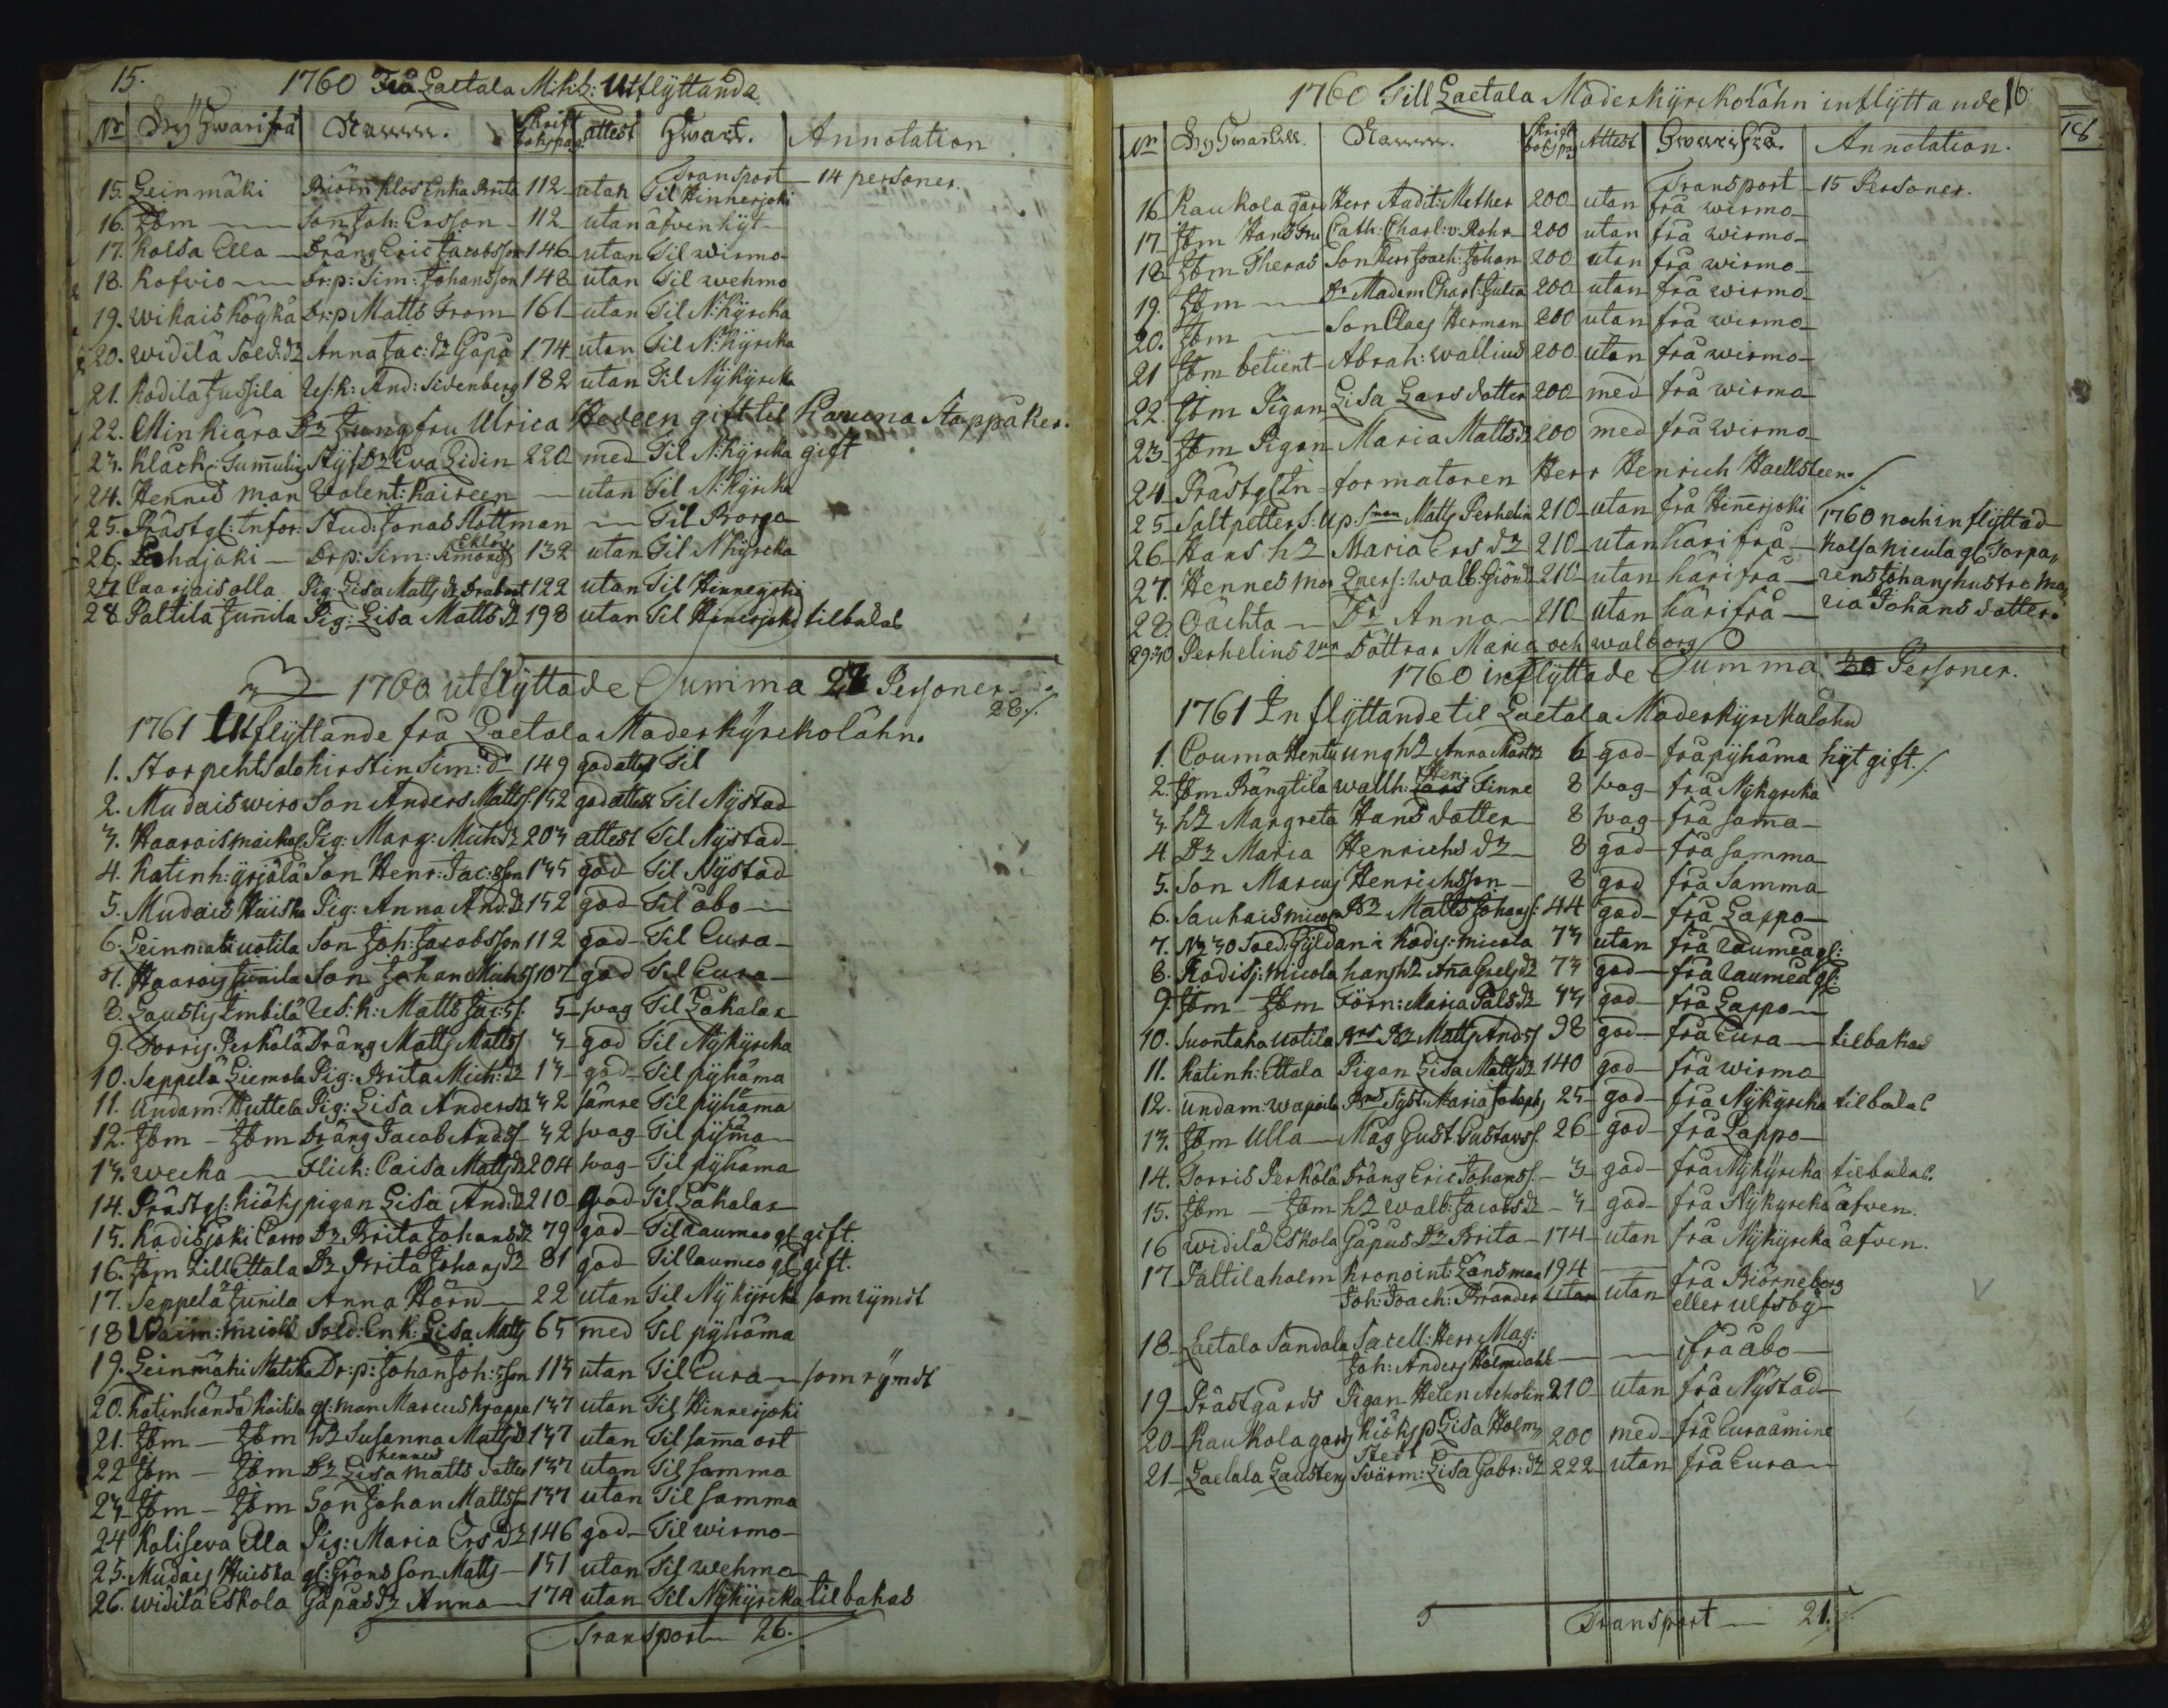 15. 1760 Från Laetala M:k:l: Utflyttande
Nr By Hwarifrå Namn. Skrift bokspag. attest Hwart. Annotation
Transport 14 personer.
15. Leinmäki Biörn Klos Enka Brita 112 utan Til Hinnerjoki
16. Ibm Son Joh: Ersson 112 utan äfven hyt
17. Kolsa Ella Dräng Eric Jacobsson 146 utan Til wirmo
18. Kofvio Dr:p: Sim: Johansson 148 utan Til wehmo
19. wikais Högkä Dr:p Matts From 161 utan Til N:Kyrcka
20. widilä Sold: Dr Anna Jac:Dr Gåpå 174 utan Til N:Kyrcka
21. Kodila Jussila Uss:k: And: Sidenberg 182 utan Til Nykyrcka
22. Minkiära Dr Jungfru Ulrica Hedeen gift til Kauona Kappäker.
23. Klåck: Sumulin Styf Dr Eva Lidin 220 med Til N:Kyrcka gift
24. Hennes man Valent: Kaireen utan Til N:Kyrcka
25. Prästg: Infor: Stud: Jonas Slottman Til Borgo
26. Lahdajoki Dr:p: Sim: Simons Eklöv 132 utan Til N:kyrcka
27. Caariaisalla Pig: Lisa Matts Dr Drabant 122 utan Til Hinnerjoki
28 Paltila Junnila Pig: Lisa Matts Dr 198 utan Til Hinnerjoki tilbakas
1760 utflyttade Summa 27 Personer
28./.
1761 Utflyttande frå Laetala Moderkyrckolähn.
1. Storpehtsalo Kirstin Sim: Dr 149 god attest Til
2. Mudais wiro Son Anders Mattss. 152 god attest Til Nystad
3. Haarois maikol Pig: Marg: Mich Dr 203 attest Til Nystad
4. Katinh: yrjälä Son Henr: Jac:sson 135 god Til Nystad
5. Mudais Huiska Pig: Anna And: Dr 152 god Til åbo
6. Leinmäki uotila Son Joh: Jacobsson 112 god Til Eura
7. Haarois Junnila Son Johan Michss 107 god Til Eura
8. Laustis Imbilä Uss:k: Matts Jac:ss. 5 swag Til Lokalax
9. Torris Perkola Dräng Matts Mattss 3 god Til Nykyrcka
10. Seppelä Liemola Pig: Brita Mich: Dr 13 god Til pyhäma
11. Undam: Huttela Pig: Lisa Anders Dr 32 sämre Til pyhäma
12. Ibm Ibm Dräng Jacob And:ss 32 swag Til pyhäma
13. wecka Flick: Caisa Matts Dr 204 swag Til pyhäma
14. Prästg: Kiöks pigan Lisa And: Dr 210 god Til Lokalax
15. Kodisjoki Carro Dr Brita Johans Dr 79 god Til Raumeo gl gift.
16. Ibm Lill Ettala Dr Brita Johans Dr 81 god Til Raumeo gl gift.
17. Seppelä Junnila Anna Hörn 22 utan Til Nykyrcka som rymdt
18 Waim: Sold: Enk: Lisa Matts 65 med Til pyhäma
19. Leinmäki Matika Dr:p: Johan Joh:sson 113 utan Til Eura som rymdt
20. Katinhändä Kaitila gl:man Marcus Krappe 137 utan Til Hinnerjoki
21. Ibm Ibm h2 Susanna Matts Dr 137 utan Til sama ort
22 Ibm Ibm Dr hennes Lisa Matts dotter 137 utan Til samma
23 Ibm Ibm Son Johan Mattsson 137 utan Til samma
24 Koliseva Ella Pig: Maria Ers Dr 146 god Til wirmo
25. Mudais Huiska gl: Gröns son Matts 151 utan Til wehmo
26. widilä Eskola Gåpas Dr Anna 174 utan Til Nykyrcka tilbakas
Transport 26.
1760 Till Laetala Moderkyrckolähn inflyttande 16.
Nr By Hwartill. Namn. Skrift boks pg Attest Hwarifrå. Annotation.
Transport 15 Personer.
16 Kaukola gård Herr Audit: Mether 200 utan frå wirmo
17 Ibm Hans Fru Cath: Charl: v. Rohr 200 utan frå wirmo
18 Ibm Theras Son Herr Joach: Johan 200 utan frå wirmo
19. Ibm Dr Madem Charl: Julia 200 utan frå wirmo
20. Ibm Son Claes Herman 200 utan frå wirmo
21 Ibm betient Abrah: wallius 200 utan frå wirmo
22. Ibm Pigan Lisa Lars dotter 200 med frå wirmo
23 Ibm Pigan Maria Matts Dr 200 med frå wirmo
24 Prästg: Informatoren Herr Henrich Haellsteen.
25 Saltpetter S: up. Sman Matts Perhelin 210 utan frå Hinnerjoki 1760 noch inflyttad
26 Hans h2 Maria Ers Dr 210 utan härifrå Kolsa Nicula gl Torpa
27. Hennes mo Quers: walb: 210 utan härifrå rens Johans hustro Ma
28. Oächta Dr Anna 210 utan härifrå ria Johans dotter.
29:30 Perhelins 2ne Döttrar Maria och walborg
1760 inflyttade Summa 30 Personer.
1761 Inflyttande til Laetala Moderkyrckolähn
1. Couma Hentu ung h2 Anna Mårts Dr 6 god frå pyhäma hyt gift./.
2. Ibm Rängtila wallh: Lars Hen: Finne 8 swag frå Nykyrcka
3. h2 Margreta Hans dotter 8 swag frå sama
4 Dr Maria Henrichs Dr 8 god frå samma
5. Son Marcus Henrichsson 8 god frå samma
6. Sauhais micola Dr Matts Johans: 44 god frå Lappo
7. No 30 Sold: Gyldan i Kodis: micola 73 utan frå Raumeå gl:
8. Kodisj: micola hans h2 Anna Grels Dr 73 god frå Raumeå gl:
9. Ibm Ibm Förn: Maria Påls Dr 73 god frå Lappo
10. Suontaka Uotila Matts And:ss 98 god frå Eura tilbakas
11. Katinh: Ettala Pigan Lisa Matts Dr 140 god frå wirmo
12. Undam: wapaila Syst: Maria Josephs 25 god frå Nykyrcka tilbakas
13. Ibm Ulla Måg Gust: Gustavss. 26 god frå Lappo
14. Torris Perkola Dräng Eric Johanss. 3 god frå Nykyrcka tilbakas.
15. Ibm Ibm h2 walb: Jacobs Dr 3 god frå Nykyrcka äfven.
16 widilä Eskola Gåpus Dr Brita 174 utan frå Nykyrcka äfven.
17 Paltila holm Kronoint: Länsman 194 frå Biörneborg
Joh: Joach: Brander utan utan eller Ulfsby
18 Laetala Sandola Sacell: Herr Mag:
Joh: Anders Holmdahl frå åbo
19 Prästgårds Pigan Helen Acholin 210 utan frå Nystad
20 Kaukola gårds Kiöksp Lisa Holm 200 med frå Euraåmine
stedt
21 Laetala Lausten Svärm: Lisa Gabr: Dr 222 utan frå Eura
Transport 21.